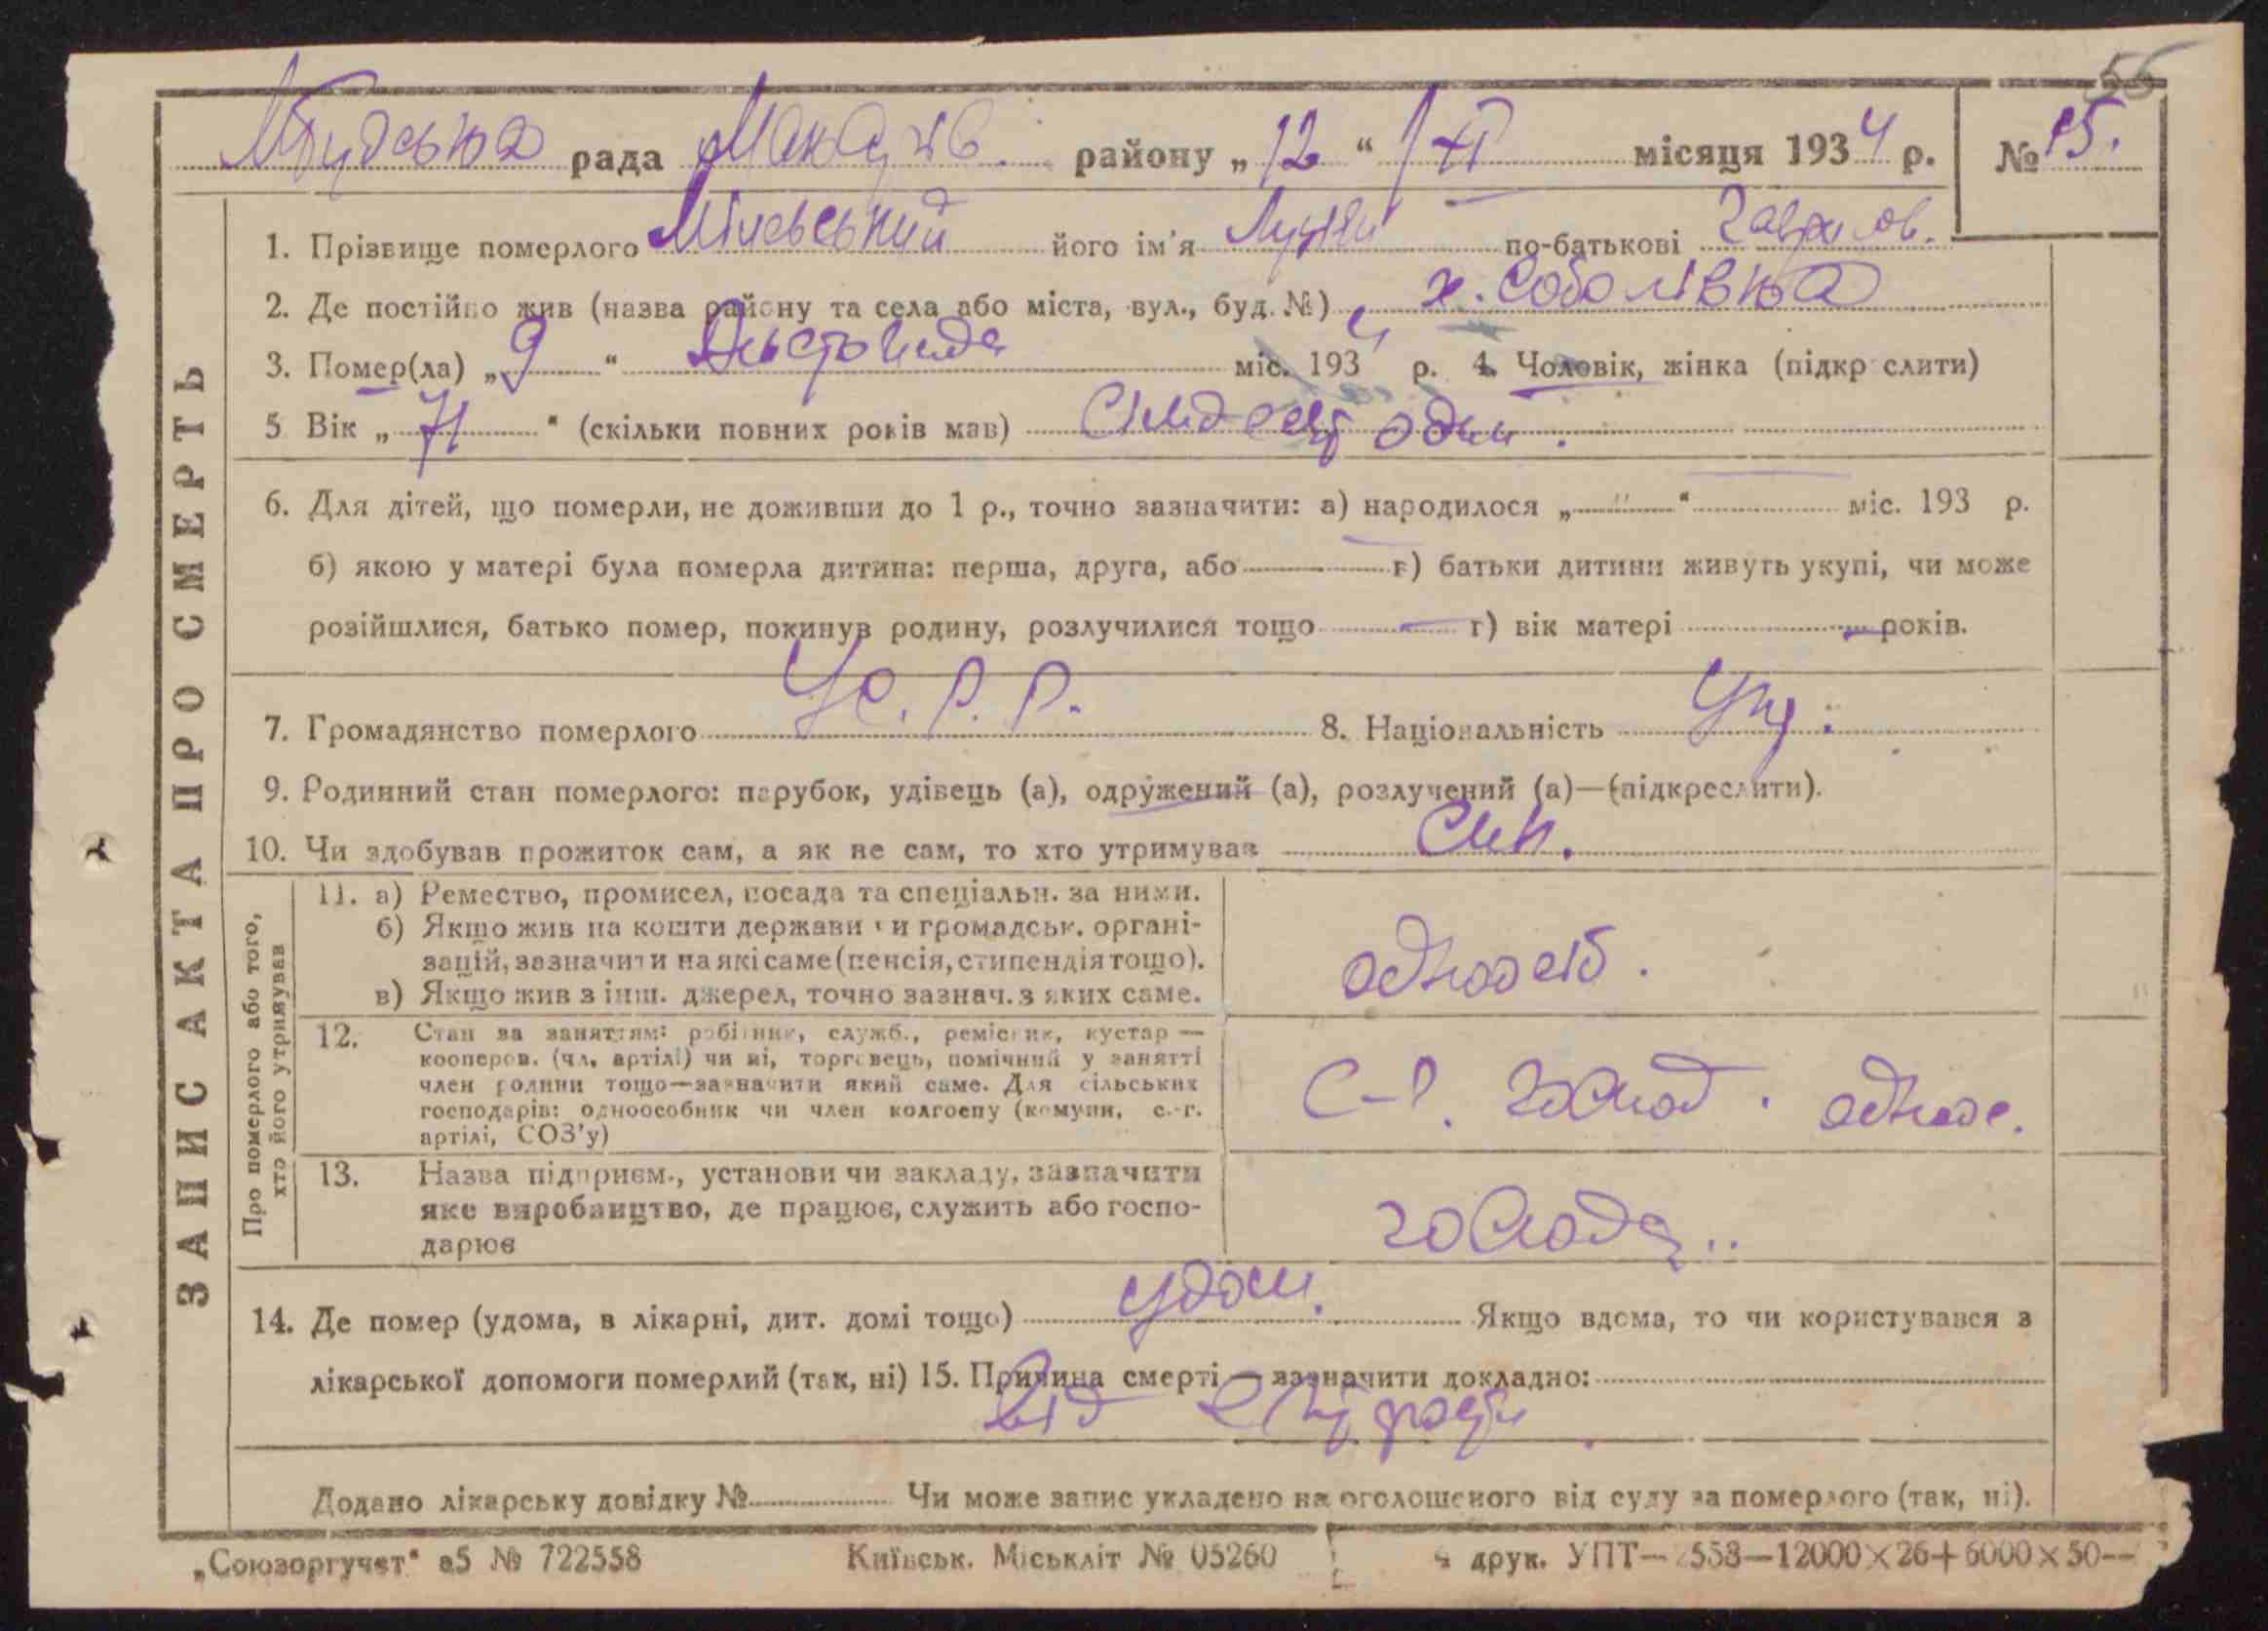 55
М.Будська рада Макарів. району „12“ XI місяця 1934 р. № 15.
ЗАПИС АКТА ПРО СМЕРТЬ
1. Прізвище померлого Мілевський його ім'я по-батькові Гаврилов.
2. Де постійно жив (назва району та села або міста, вул., буд. №) х. Соболівка
3. Помер(ла) „9“ Листопада міс. 1934 р. 4. Чоловік, жінка (підкреслити)
5 Вік „71“ (скільки повних років мав) Сімдесят один.
6. Для дітей, що померли, не доживши до 1 р., точно зазначити: а) народилося „ “ міс. 193 р.
б) якою у матері була померла дитина: перша, друга, або — в) батьки дитини живуть укупі, чи може
розійшлися, батько помер, покинув родину, розлучилися тощо — г) вік матері — років.
7. Громадянство померлого У.С.Р.Р. 8. Національність Укр.
9. Родинний стан померлого: парубок, удівець (а), одружений (а), розлучений (а)—(підкреслити).
10. Чи здобував прожиток сам, а як не сам, то хто утримував Син.
Про померлого або того, хто його утримував
11. а) Ремество, промисел, посада та спеціальн. за ними.
б) Якщо жив на кошти держави чи громадськ. органі-
зацій, зазначити на які саме (пенсія, стипендія тощо).
в) Якщо жив з інш. джерел, точно зазнач. з яких саме.
одноосіб.
12. Стан за заняттям: робітник, служб., ремісник, кустар —
кооперов. (чл. артілі) чи ні, торговець, помічний у занятті
член родини тощо—зазначити який саме. Для сільських
господарів: одноособник чи член колгоспу (комуни, с.-г.
артілі, СОЗ'у)
С-г. господ. одноос.
13. Назва підприєм., установи чи закладу, зазначити
яке виробництво, де працює, служить або госпо-
дарює
господар..
14. Де помер (удома, в лікарні, дит. домі тощо) удом. Якщо вдома, то чи користувався з
лікарської допомоги померлий (так, ні) 15. Причина смерті — зазначити докладно:
від старости
Додано лікарську довідку № Чи може запис укладено на оголошеного від суду за померлого (так, ні).
„Союзоргучет“ а5 № 722558 Київськ. Міськліт № 05260 4 друк. УПТ— 2553—12000×26+6000×50—